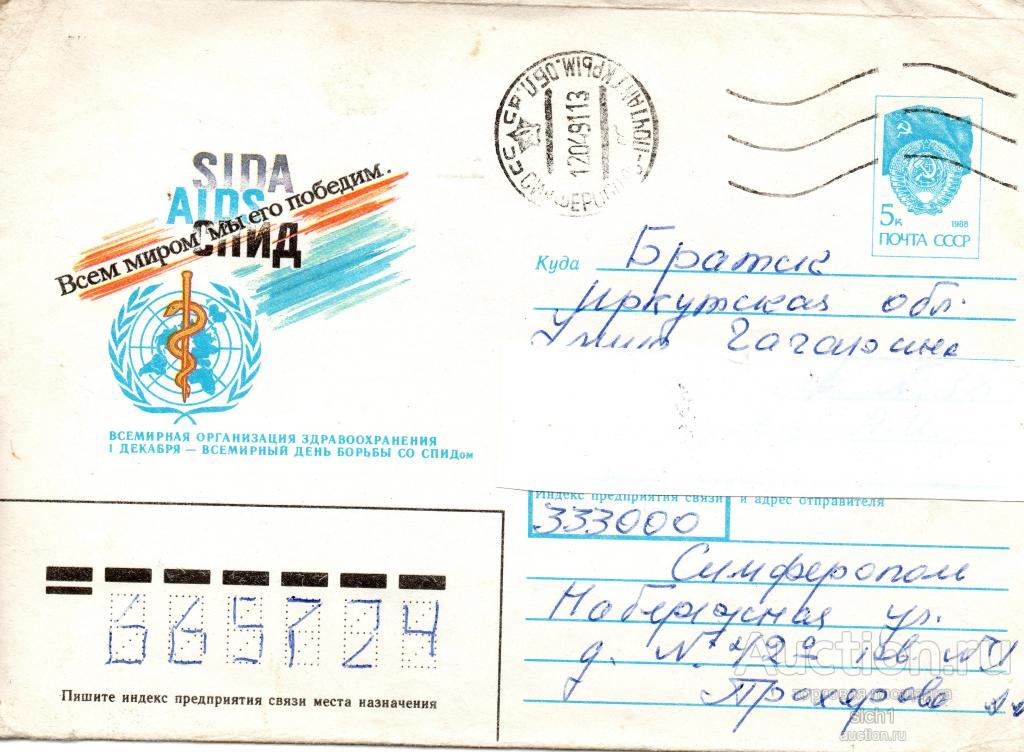 SIDA
AIDS
СПИД
Всем миром мы его победим.
ВСЕМИРНАЯ ОРГАНИЗАЦИЯ ЗДРАВООХРАНЕНИЯ
1 ДЕКАБРЯ — ВСЕМИРНЫЙ ДЕНЬ БОРЬБЫ СО СПИДом
СССР
КРЫМ.ОБЛ.
ПОЧТАМТ
12049113
5к
1988
ПОЧТА СССР
Куда Братск
Иркутская обл.
Улица Гагарина
Индекс предприятия связи и адрес отправителя
333000
Симферополь
Набережная ул.
д. № 42
Прохорова
665724
Пишите индекс предприятия связи места назначения
Auction.ru
торговая площадка
Sich1
auction.ru